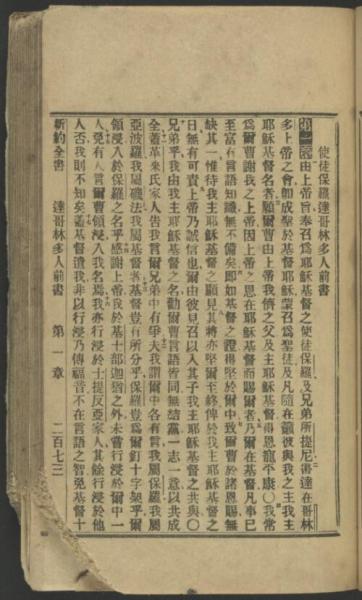 使徒保羅達哥林多人前書
第一章由上帝旨奉召爲耶穌基督之使徒保羅及兄弟所提尼書達在哥林
多上帝之會卽成聖於基督耶穌蒙召爲聖徒及凡隨在籲彼與我之主我主
耶穌基督名者願爾曹由上帝我儕之父及主耶穌基督得恩寵平康〇我常
爲爾曹謝我之上帝因上帝之恩在耶穌基督而賜爾者乃爾在基督凡事已
至富有言語知識無不備矣卽如基督之證得堅於爾中致爾曹於諸恩賜無
缺其一惟待我主耶穌基督之顯見其將亦堅爾至終俾於我主耶穌基督之
日無有可責上帝乃誠信也爾由彼見召以入其子我主耶穌基督之共與〇
兄弟乎我由我主耶穌基督之名勸爾曹言語皆同無結黨一志一意以共成
全蓋革來氏家人告我言爾兄弟中有爭夫我謂爾中各有言我屬保羅我屬
亞波羅我屬磯法我屬基督基督豈有所分乎保羅豈爲爾釘十字架乎爾
領浸入於保羅之名乎感謝上帝我於基士部迦猶之外未嘗行浸於爾中一
人免有人言爾曹領浸入我名焉我亦行浸於士提反亞家人其餘行浸於他
人否我則不知矣蓋基督遣我非以行浸乃傳福音不在言語之智免基督十
新約全書　達哥林多人前書　第一章　二百七三